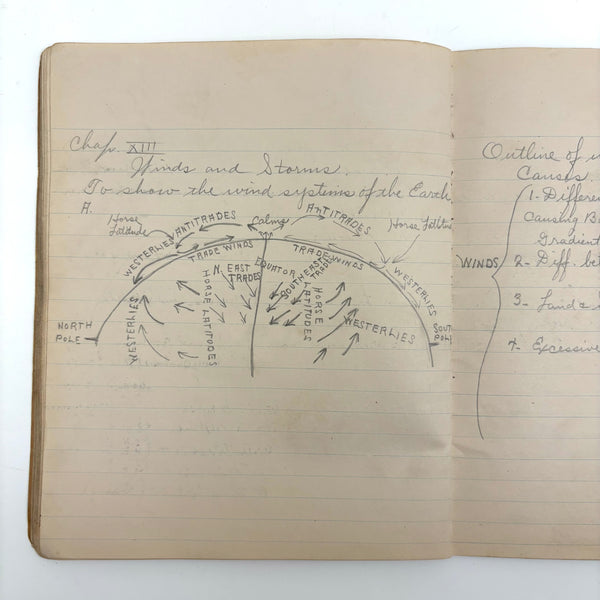 Chap. XIII
Winds and Storms.
To show the wind systems of the Earth
A.
Horse Latitude
ANTITRADES
Calms
ANTITRADES
Horse Latitude
WESTERLIES
TRADE WINDS
TRADE WINDS
WESTERLIES
N. EAST TRADES
EQUATOR
SOUTHEAST TRADES
HORSE LATITUDES
HORSE LATITUDES
WESTERLIES
WESTERLIES
NORTH POLE
SOUTH POLE
Outline of
Causes.
1. Differen
Causing Ba
Gradient
WINDS
2- Diff. bet
3- Land &
4- Excessive